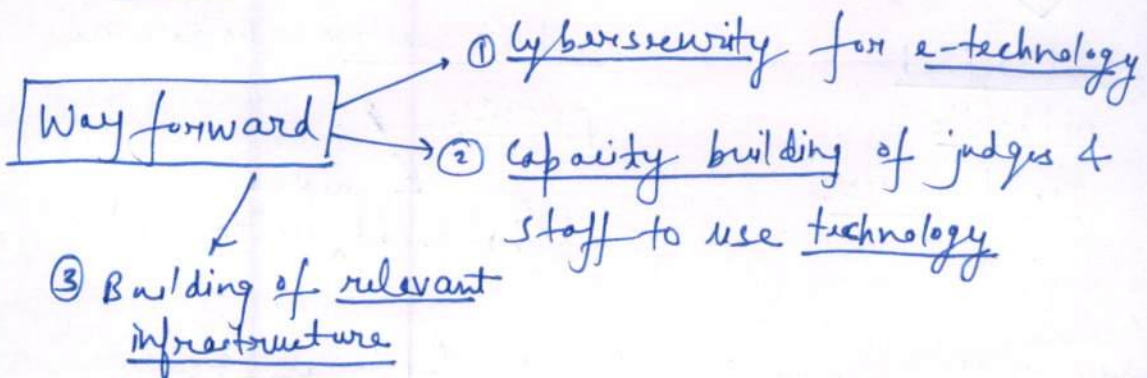 ① Cybersecurity for e-technology
Way forward
② Capacity building of judges &
staff to use technology
③ Building of relevant
infrastructure